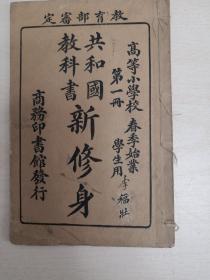 教育部審定
高等小學校 春季始業
第一冊 學生用
李福壯
共和國
教科書
新修身
商務印書館發行